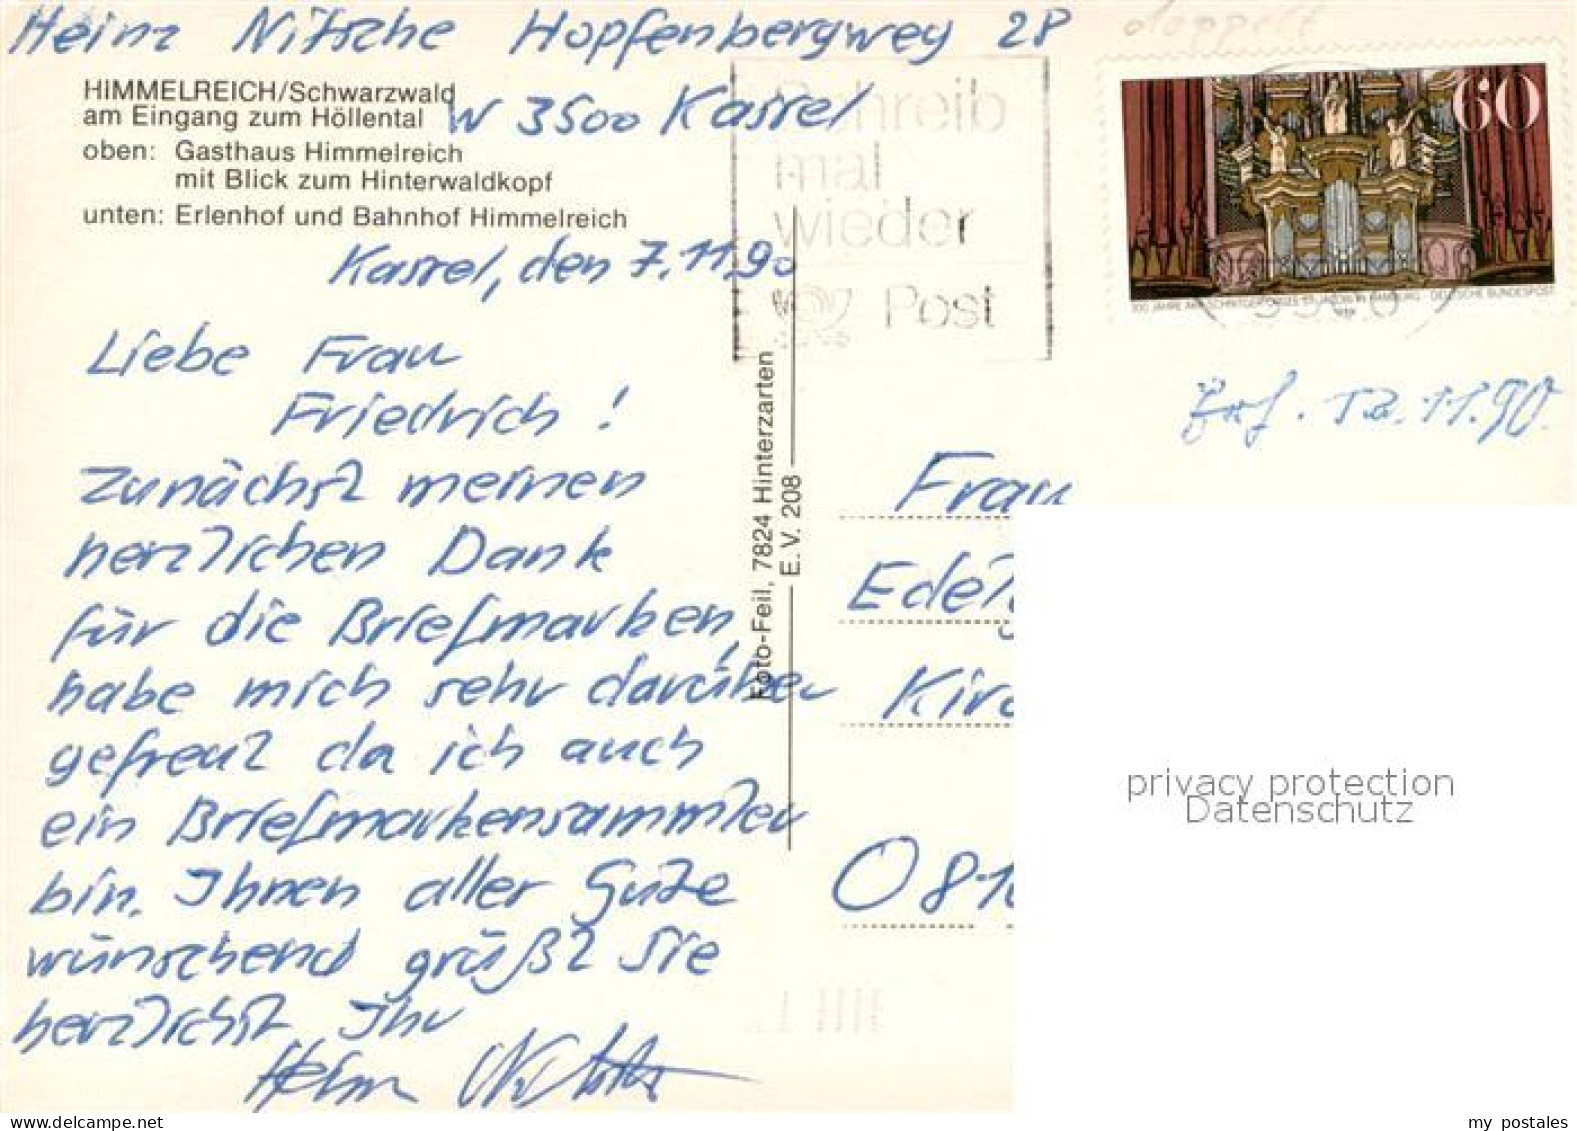 Heinz Nitzsche Hopfenbergweg 28
doppelt
HIMMELREICH/Schwarzwald
am Eingang zum Höllental
W 3500 Kassel
oben: Gasthaus Himmelreich
mit Blick zum Hinterwaldkopf
unten: Erlenhof und Bahnhof Himmelreich
Kassel, den 7.11.90
Liebe Frau
Friedrich!
Zunächst meinen
herzlichen Dank
für die Briefmarken,
habe mich sehr darüber
gefreut da ich auch
ein Briefmarkensammler
bin. Ihnen aller Gute
wünschend grüßt Sie
herzlichst Ihr
Heinz Nitzsche
Foto-Feil, 7824 Hinterzarten
E. V. 208
Schreib
mal
wieder
Post
60
300 JAHRE ARP-SCHNITGER-ORGEL ST. JACOBI IN HAMBURG · DEUTSCHE BUNDESPOST
1989
3500
12.11.90.
Frau
Edel
Kirc
O 81
privacy protection
Datenschutz
www.delcampe.net
my_postales